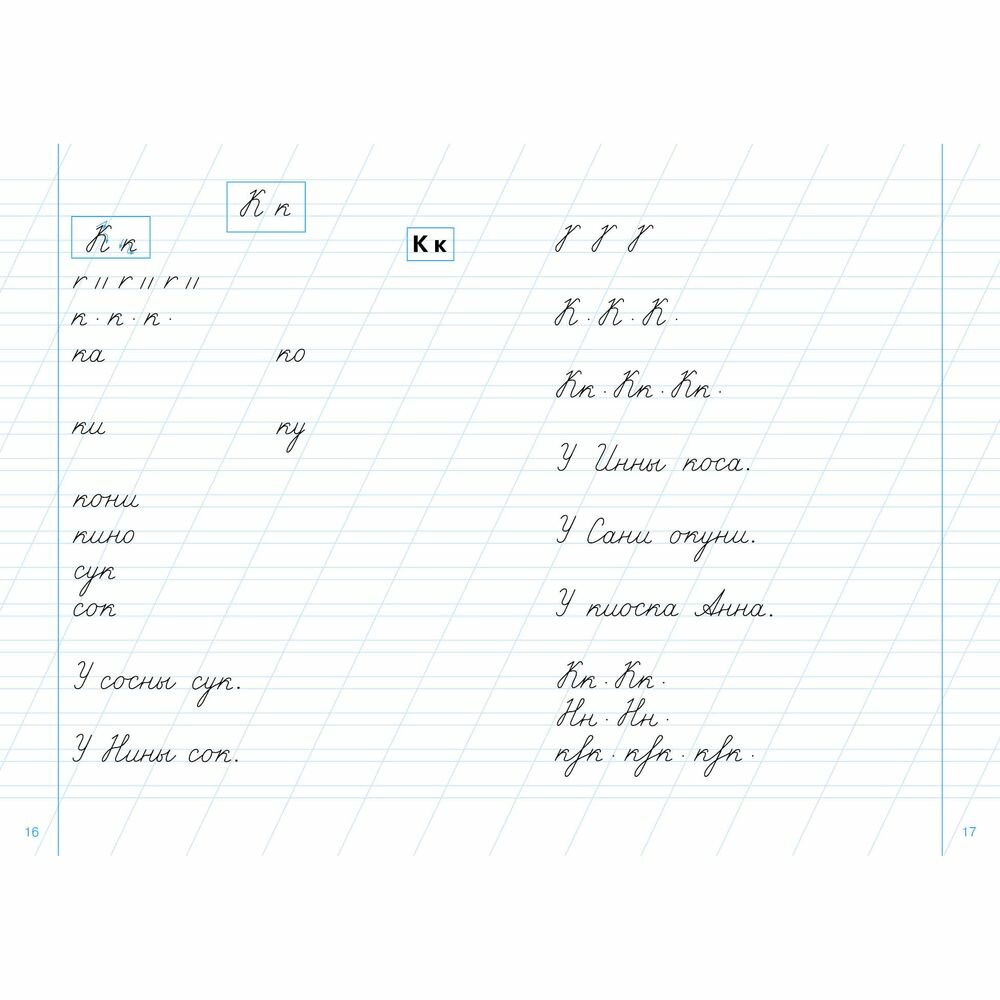 К к
К к
К к
к · к · к ·
ка ко
ки ку
кони
кино
сук
сок
У сосны сук.
У Нины сок.
16
К · К · К ·
Кк · Кк · Кк ·
У Инны коса.
У Сани окуни.
У киоска Анна.
Кк · Кк ·
Нн · Нн ·
17